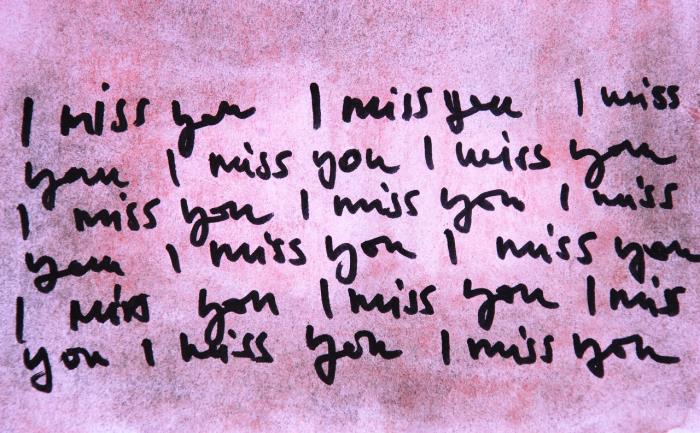 I miss you I miss you I miss
you I miss you I miss you
I miss you I miss you I miss
you I miss you I miss you
I miss you I miss you I mis
you I miss you I miss you